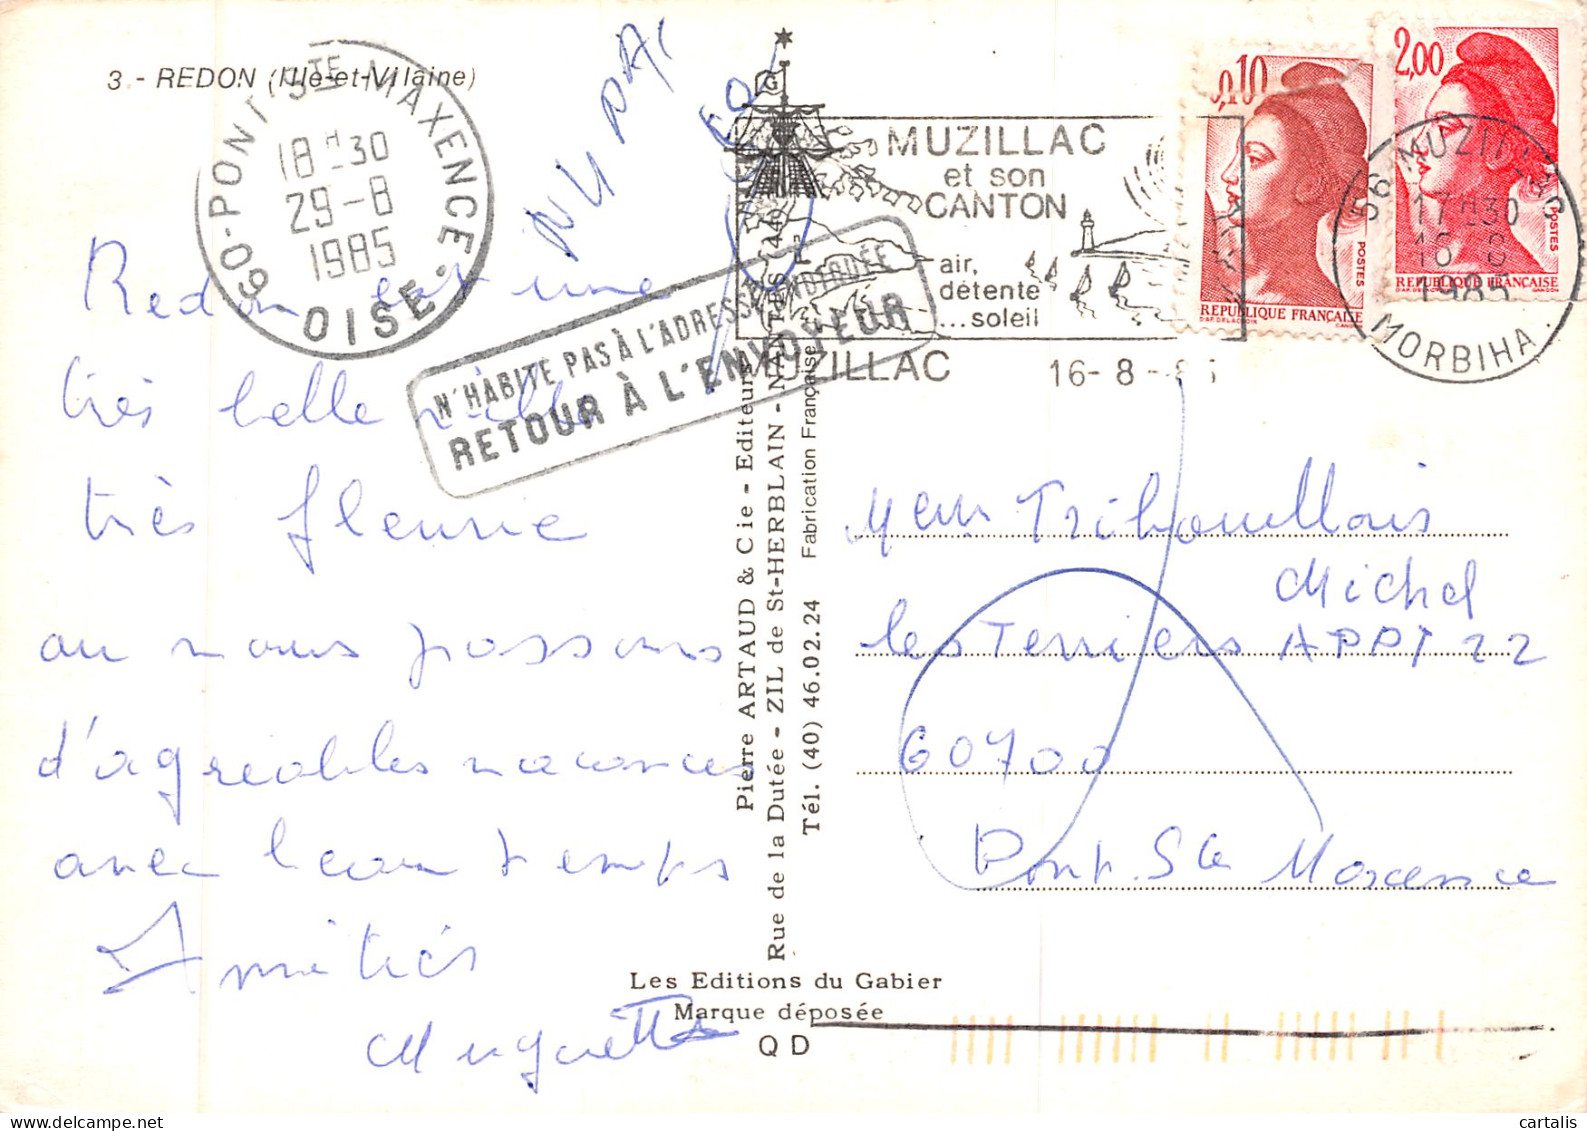 3 - REDON (Ille-et-Vilaine)
60-PONT STE MAXENCE
18H30
29-8
1985
OISE
N'HABITE PAS À L'ADRESSE INDIQUÉE
RETOUR À L'ENVOYEUR
MUZILLAC
et son
CANTON
air,
détente
...soleil
MUZILLAC
16-8-85
0,10
POSTES
REPUBLIQUE FRANÇAISE
2,00
POSTES
REPUBLIQUE FRANÇAISE
56 MUZILLAC
17H30
16 8
1985
MORBIHAN
Redon est une
très belle ville
très fleurie
ou nous passons
d'agréables vacances
avec beau temps
Amitiés
Muguette
Pierre ARTAUD & Cie - Editeurs
Rue de la Dutée - ZIL de St-HERBLAIN - NANTES (44)
Tél. (40) 46.02.24 Fabrication Française
Les Editions du Gabier
Marque déposée
QD
Tribouillois
Michel
les Terriers APPT 22
60700
Pont Ste Maxence
cartalis